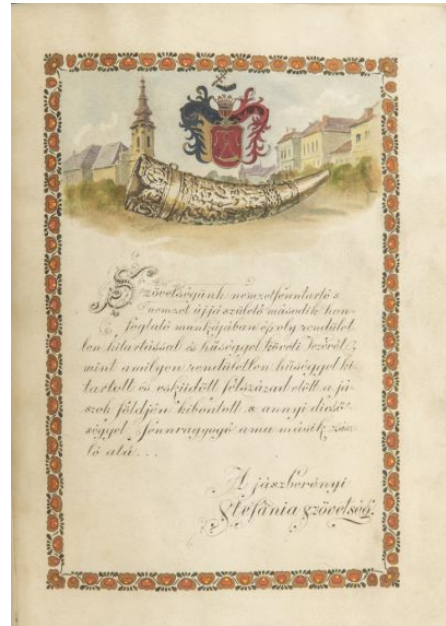 Szövetségünk nemzetfönntartó s
nemzet újjászülető második hon-
foglaló munkájában époly rendület-
len kitartással és hűséggel követi Vezérét,
mint amilyen rendületlen hűséggel ki-
tartott és esküdött félszázad előtt a já-
szok földjén kibontott s annyi dicső-
séggel fönnragyogó ama másik zász-
ló alá...
A jászberényi
Stefánia szövetség.